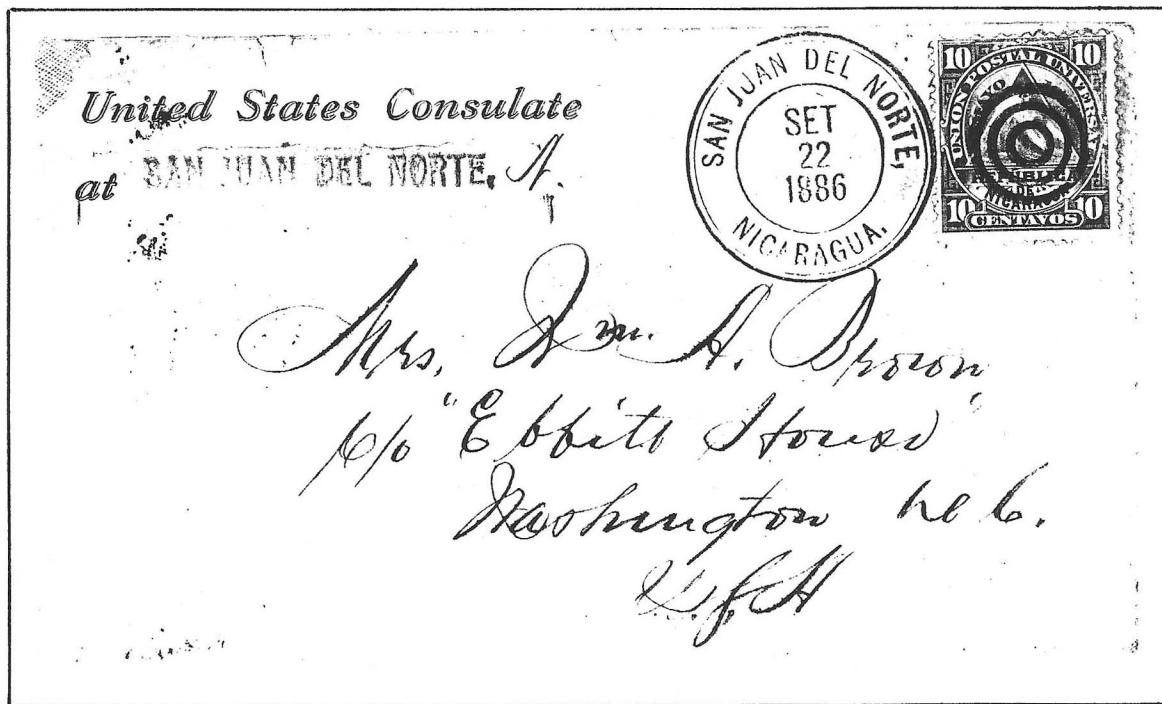 United States Consulate
at SAN JUAN DEL NORTE, N.
SAN JUAN DEL NORTE,
SET
22
1886
NICARAGUA.
10 10
UNION POSTAL UNIVERSAL
REPUBLICA
DE
NICARAGUA
10 10
CENTAVOS
Mrs. Wm. A. Brown
c/o "Ebbitt House"
Washington D C.